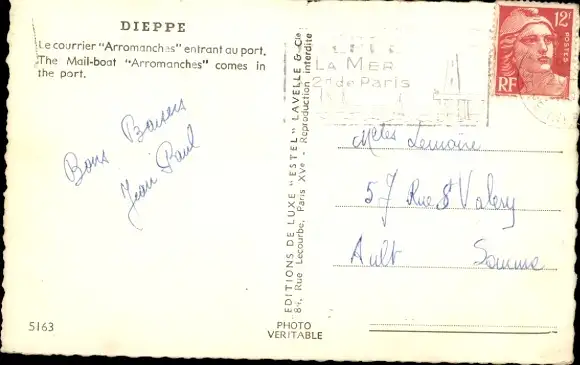 DIEPPE
Le courrier "Arromanches" entrant au port.
The Mail-boat "Arromanches" comes in
the port.
Bons Baisers
Jean Paul
5163
EDITIONS DE LUXE "ESTEL" LAVELLE & Cie
84, Rue Lecourbe, Paris XVe - Reproduction interdite
PHOTO
VERITABLE
LA MER
de Paris
12F
POSTES
RF
Melles Lemaire
57 Rue St Valery
Ault Somme